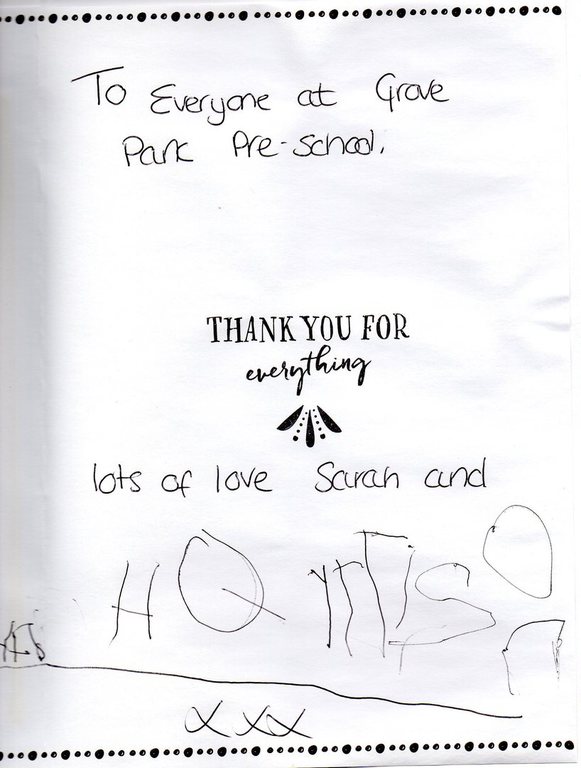 To Everyone at Grove
Park Pre-school.
THANK YOU FOR
everything
lots of love Sarah and
xxx